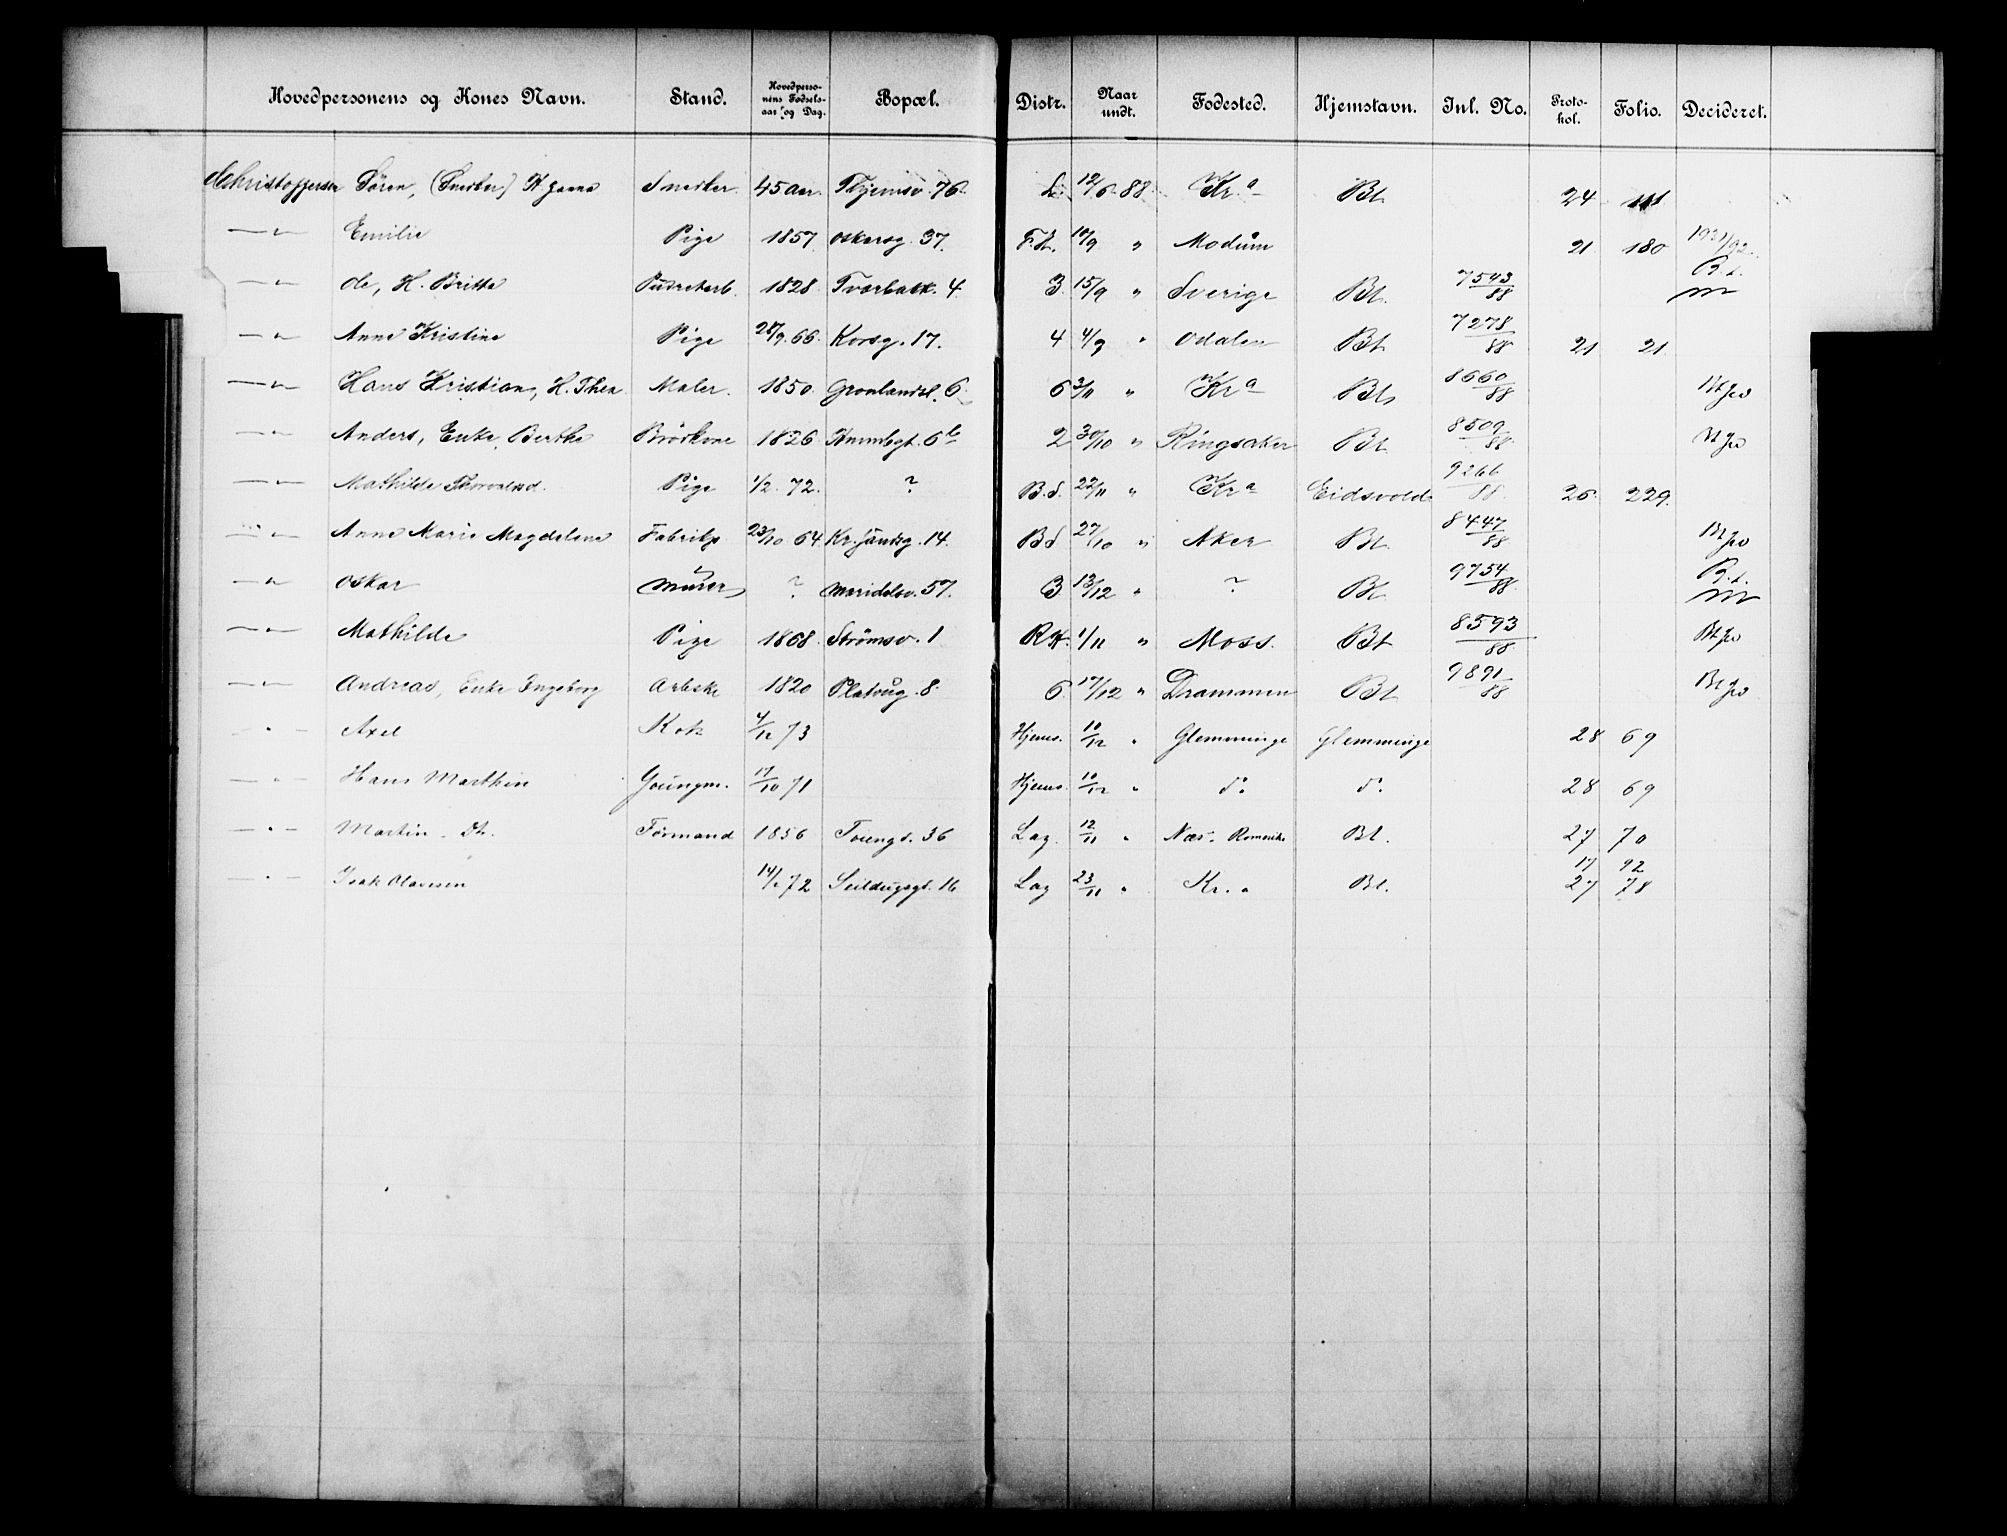 Hovedpersonens og Kones Navn. Stand. Hovedperso-nens Fødsels-aar og Dag. Bopæl. Distr. Naar undt. Fødested. Hjemstavn. Inl. No. Proto-kol. Folio. Decideret.
Christoffersen Søren, (Snedker) H. Snedker. 45 aar. 76. 12/6 88. Kr.a Bt. 24
—"— Emilie Pige 1857. Oskarsg. 37. F.L. 10/9 " Modum 21 180
—"— H. Britta 1828. Tværbakk. 4. 3. 15/9 " Sverige Bt. 7543/88
—"— Anne Kristine Pige 66. Korsg. 17. 4 4/9 " Odalen Bt. 7278/88 21 21
—"— Hans Kristian, H. Thea Maler. 1850. Grønlandsl. 6. 6 3/11 " Kr.a Bt. 8660/88
—"— Anders, Enke Berthe Brødkone 1826. 6b 2 30/10 " Ringsaker Bt. 8509/88
—"— Mathilde Thorvaldsd. Pige 1/2. 72. ? B.d. 22/11 " Kr.a Eidsvold 9266/88. 26. 229.
—"— Anne Marie Magdalene Fabrikp. 23/10 64. 14. Bd 27/10 " Aker Bt. 8447/88
—"— Oskar Murer ? Maridalsv. 57. 3 13/12 " ? Bt. 9754/88.
—"— Mathilde Pige 1868. Strømsv. 1 1/11 " Moss. Bt 8593/88
—"— Andreas, Enke Ingeborg Arbske 1820 Platoug. 8. 6 17/12 " Drammen Bt 9891/88
—"— Axel Kok 4/12 73 Hjems. 10/12 " Glemminge Glemminge 28 69
—"— Hans Marthin Youngm. 17/10 71 Hjems. 10/12 " do do 28 69
—"— Martin Formand 1856 Toiengt. 36 Lag. 12/11 " Næs. Romerike Bt. 27 70
—"— Isak Olausen 72 Seildugsgt. 16 Lag 23/11 " Kr.a Bt. 17 92
27 78